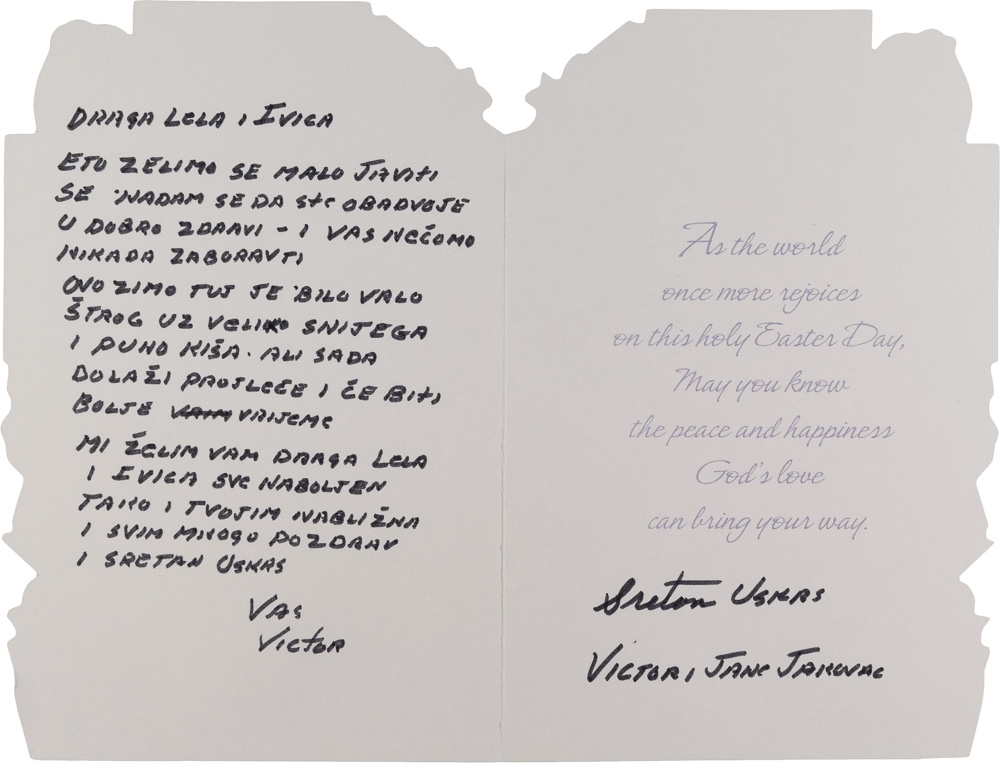 DRAGA LELA I IVICA
ETO ZELIMO SE MALO JAVITI
SE NADAM SE DA STE OBADVOJE
U DOBRO ZDRAVI - I VAS NEČOMO
NIKADA ZABORAVTI
OVO ZIMO TUJ JE BILO VALO
ŠTROG UZ VELIKO SNIJEGA
I PUNO KIŠA. ALI SADA
DOLAŽI PROJLEČE I ČE BITI
BOLJE VRIJEME
MI ŽELIM VAM DRAGA LELA
I IVICA SVE NABOLJEN
TAKO I TVOJIM NABLIŽNA
I SVIM MNOGO POZDRAV
I SRETAN USKRS
VAS
VICTOR
As the world
once more rejoices
on this holy Easter Day,
May you know
the peace and happiness
God's love
can bring your way.
Sretan USKRS
VICTOR I JANE JAKOVAC